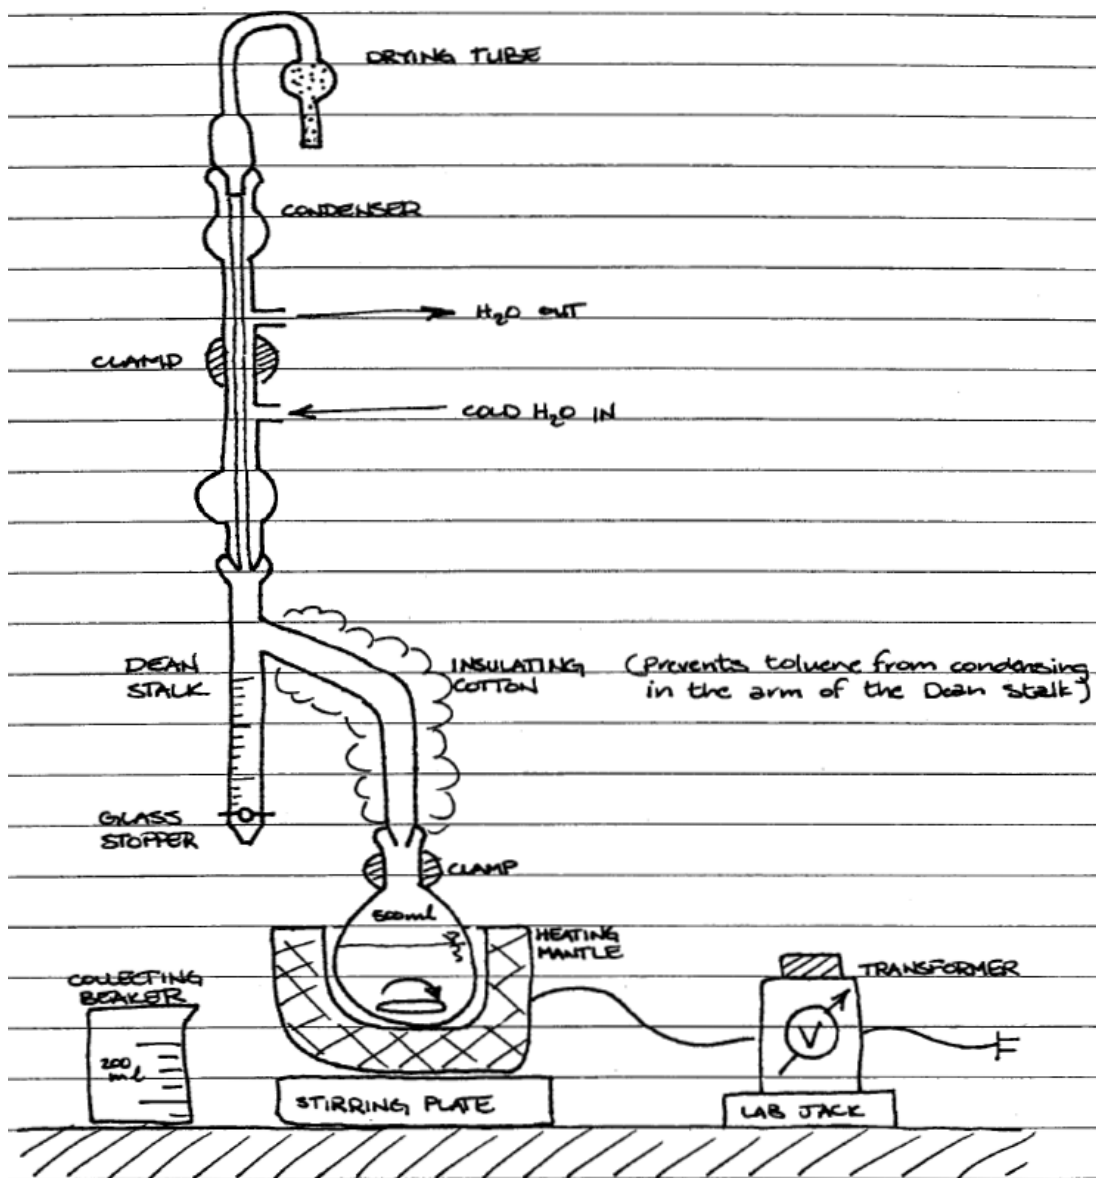 DRYING TUBE
CONDENSER
H₂O OUT
CLAMP
COLD H₂O IN
DEAN
STALK
INSULATING
COTTON
(Prevents toluene from condensing
in the arm of the Dean Stalk)
GLASS
STOPPER
CLAMP
500ml
2/3
HEATING
MANTLE
COLLECTING
BEAKER
200
ml
TRANSFORMER
V
STIRRING PLATE
LAB JACK